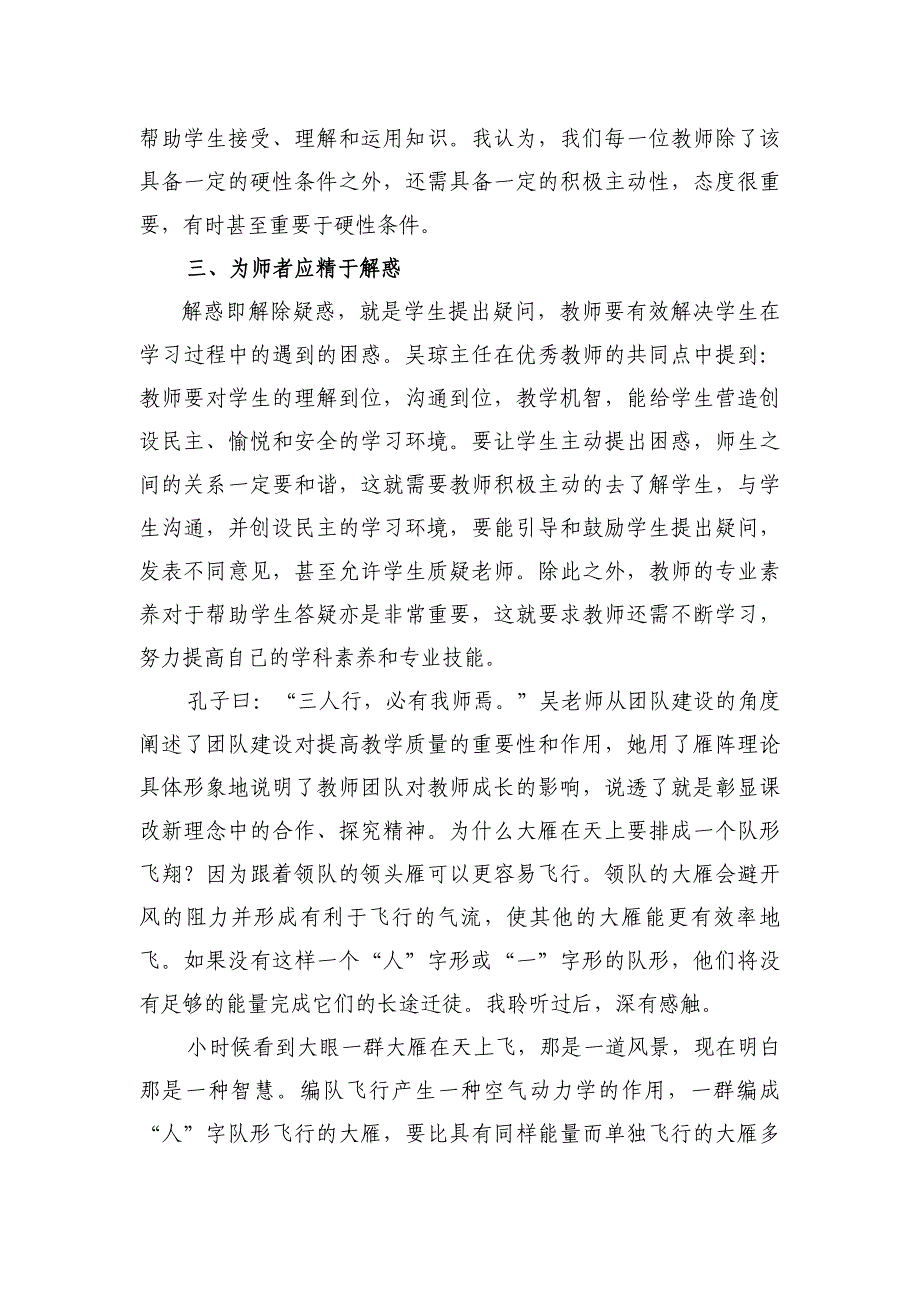 帮助学生接受、理解和运用知识。我认为，我们每一位教师除了该
具备一定的硬性条件之外，还需具备一定的积极主动性，态度很重
要，有时甚至重要于硬性条件。
三、为师者应精于解惑
解惑即解除疑惑，就是学生提出疑问，教师要有效解决学生在
学习过程中的遇到的困惑。吴琼主任在优秀教师的共同点中提到：
教师要对学生的理解到位，沟通到位，教学机智，能给学生营造创
设民主、愉悦和安全的学习环境。要让学生主动提出困惑，师生之
间的关系一定要和谐，这就需要教师积极主动的去了解学生，与学
生沟通，并创设民主的学习环境，要能引导和鼓励学生提出疑问，
发表不同意见，甚至允许学生质疑老师。除此之外，教师的专业素
养对于帮助学生答疑亦是非常重要，这就要求教师还需不断学习，
努力提高自己的学科素养和专业技能。
孔子曰：“三人行，必有我师焉。”吴老师从团队建设的角度
阐述了团队建设对提高教学质量的重要性和作用，她用了雁阵理论
具体形象地说明了教师团队对教师成长的影响，说透了就是彰显课
改新理念中的合作、探究精神。为什么大雁在天上要排成一个队形
飞翔？因为跟着领队的领头雁可以更容易飞行。领队的大雁会避开
风的阻力并形成有利于飞行的气流，使其他的大雁能更有效率地
飞。如果没有这样一个“人”字形或“一”字形的队形，他们将没
有足够的能量完成它们的长途迁徒。我聆听过后，深有感触。
小时候看到大眼一群大雁在天上飞，那是一道风景，现在明白
那是一种智慧。编队飞行产生一种空气动力学的作用，一群编成
“人”字队形飞行的大雁，要比具有同样能量而单独飞行的大雁多